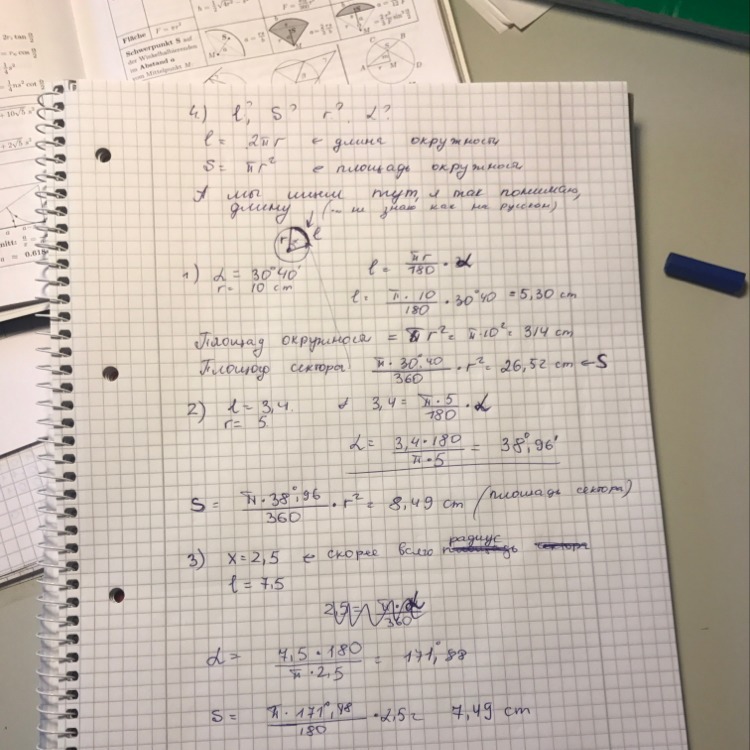 2r, tan
Fläche F = πr²
Schwerpunkt S auf
der Winkelhalbierenden
im Abstand a
vom Mittelpunkt M.
4.) l? S? r? α?
l = 2πr ← длина окружности
S = πr² ← площадь окружности
А мы ищем тут, я так понимаю,
длину (— не знаю как на русском)
r l
1) α = 30°40'
r = 10 cm
l = πr/180 · α
l = π · 10/180 · 30°40 = 5,30 cm
Площад окружности = πr² = π·10² = 314 cm
Площад сектора π · 30°.40/360 · r² = 26,52 cm ← S
2) l = 3,4.
r = 5
3,4 = π · 5/180 · α
α = 3,4 · 180/π · 5 = 38°,96'
S = π · 38°,96/360 · r² = 8,49 cm (площадь сектора)
3) x = 2,5 ← скорее всего радиус
l = 7,5
α = 7,5 · 180/π · 2,5 = 171°,88
S = π · 171°,88/180 · 2,5 = 7,49 cm